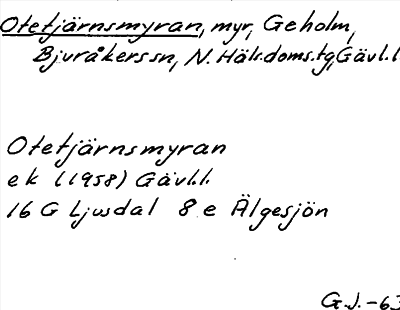 Otetjärnsmyran, myr, Geholm,
Bjuråkerssn, N. Häls.doms.tg, Gävl.l.
Otetjärnsmyran
ek (1958) Gävl.l.
16 G Ljusdal 8 e Älgesjön
G.J. -63